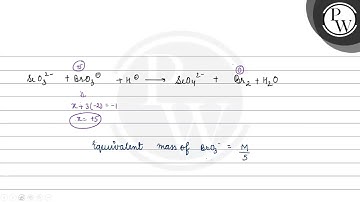 +5 0
SeO₃²⁻ + BrO₃⊖ + H⊕ → SeO₄²⁻ + Br₂ + H₂O
x + 3(-2) = -1
x = +5
Equivalent mass of BrO₃⁻ = M/5
PW